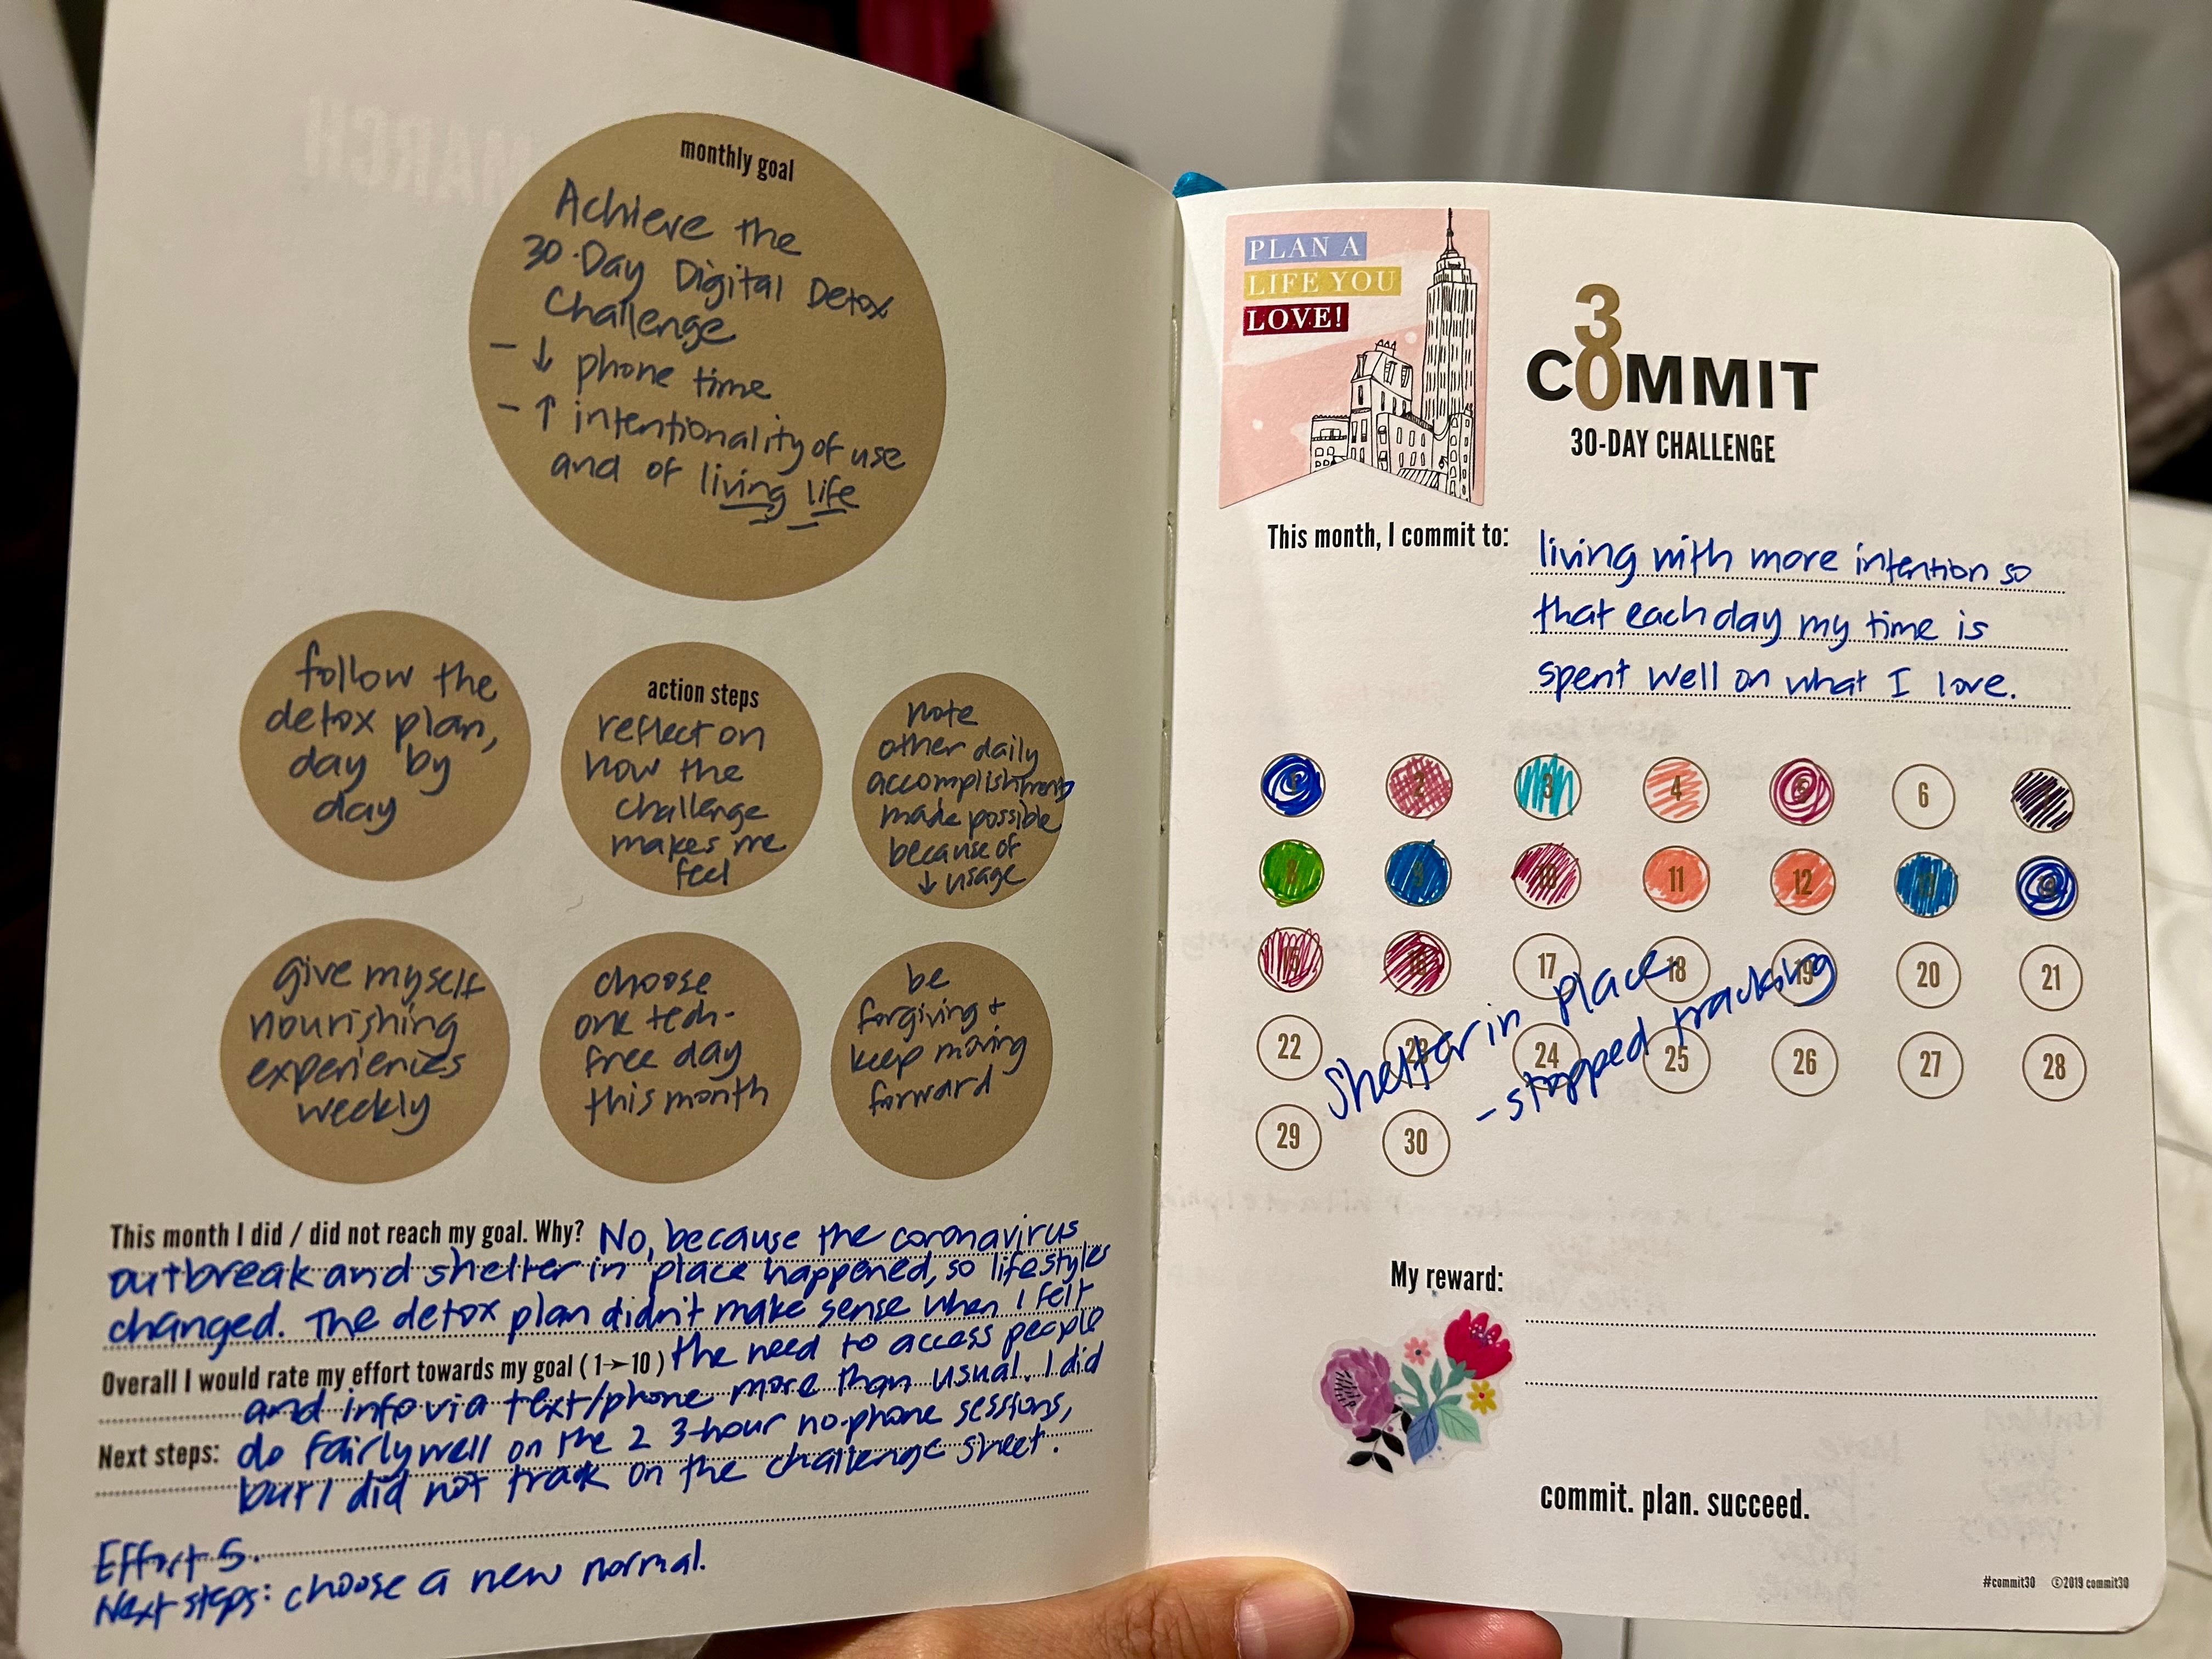 monthly goal
Achieve the
30-Day Digital Detox
Challenge
- ↓ phone time
- ↑ intentionality of use
and of living life
follow the
detox plan,
day by
day
action steps
reflect on
how the
challenge
makes me
feel
note
other daily
accomplishments
made possible
because of
↓ usage
give myself
nourishing
experiences
weekly
choose
one tech-
free day
this month
be
forgiving +
keep moving
forward
This month I did / did not reach my goal. Why? No, because the coronavirus
outbreak and shelter in place happened, so lifestyles
changed. The detox plan didn't make sense when I felt
Overall I would rate my effort towards my goal (1→10) the need to access people
and info via text/phone more than usual. I did
Next steps: do fairly well on the 2 3-hour no-phone sessions,
but I did not track on the challenge sheet.
Effort 5.
Next steps: choose a new normal.
MARCH
PLAN A
LIFE YOU
LOVE!
30
COMMIT
30-DAY CHALLENGE
This month, I commit to: living with more intention so
that each day my time is
spent well on what I love.
1 2 3 4 5 6 7
8 9 10 11 12 13 14
15 16 17 18 19 20 21
22 23 24 25 26 27 28
29 30
Shelter in place
- stopped tracking
My reward:
commit. plan. succeed.
#commit30 ©2019 commit30